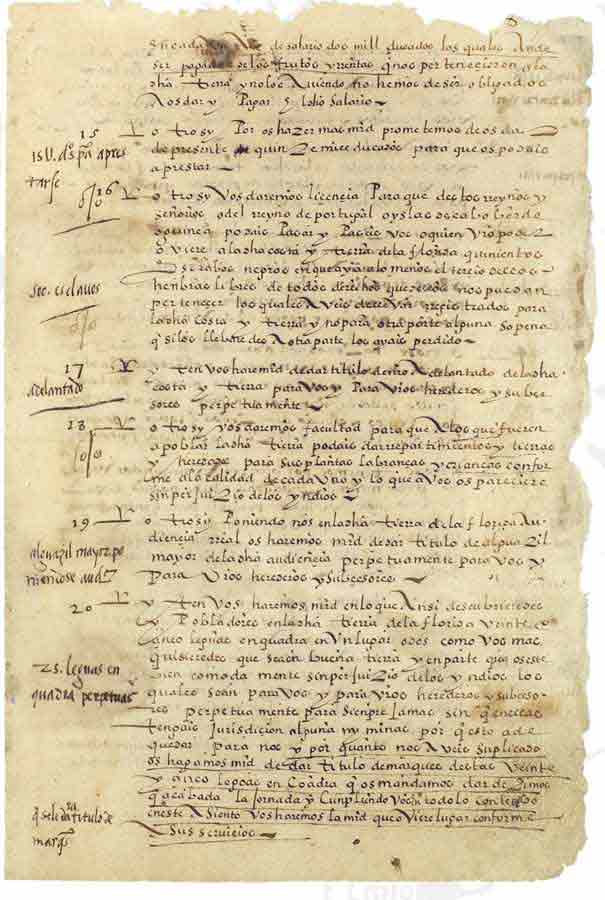 en cada un año de salario dos mill ducados los quales an de
ser pagados de los frutos y rrentas q̃ nos pertenecieren en la
dha tierra y no los aviendo no hemos de ser obligados
a os dar y pagar el dho salario
15 otrosy por os hazer mas md prometemos de os dar
de presente quinze mill ducados para que os podais
aprestar
16 otrosy vos daremos licencia para que destos rreynos y
señorios o del reyno de portugal o yslas de cabo berde
o guinea podais pasar y paseis vos o quien vro poder
oviere a la dha costa y tierra de la florida quinientos
esclabos negros en que aya a lo menos el tercio dellos
henbras libres de todos derechos que dellos nos puedan
pertenecer los quales aveis de llevar rregistrados para
la dha costa y tierra y no para otra parte alguna so pena
q̃ si los llebardes a otra parte los ayais perdido
17 yten vos haremos md de dar titulo de nro adelantado de la dha
costa y tierra para vos y para vros herederos y subce
sores perpetuamente
18 otrosy vos daremos facultad para que a los que fueren
a poblar la dha tierra podais dar repartimientos y tierras
y heredades para sus plantas labranças y crianças confor
me a la calidad de cada uno y lo que a vos os pareciere
sin perjuizio de los yndios
19 otrosy poniendo nos en la dha tierra de la florida au
diencia real os haremos md de dar titulo de alguazil
mayor de la dha audiencia perpetuamente para vos y
para vros herederos y subcesores
20 yten vos haremos md en lo que ansi descubrieredes
y poblaredes en la dha tierra de la florida veinte y
cinco leguas en quadra en un lugar o dos como vos mas
quisieredes que sea en buena tierra y en parte que os este
bien comodamente sin perjuizio de los yndios los
quales sean para vos y para vros herederos y subceso
res perpetuamente para siempre jamas sin que en ellas
tengais jurisdicion alguna ny minas por q̃ esto a de
quedar para nos y por quanto nos aveis suplicado
os hagamos md de dar titulo de marques destas veinte
y cinco leguas en quadra q̃ os mandamos dar dezimos
q̃ acabada la jornada y cunpliendo vos todo lo contenido
en este asiento vos haremos la md que oviere lugar conforme
a sus servicios
aprestarse
500. esclavos
adelantado
alguazil mayor po
niendose audª
25. leguas en
quadra perpetuas
q̃ se le dara titulo de
marqs